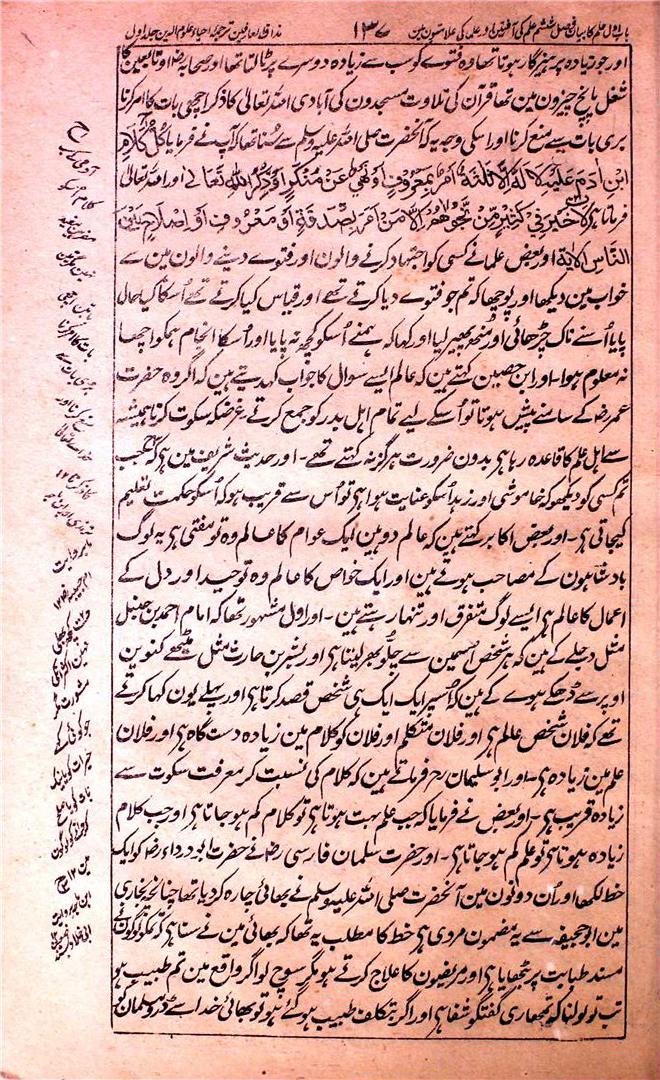 باب اول علم کا بیان فصل ششم علم کی آفتین اور علما کی علامتون مین ۱۳۷ مذاق العارفین ترجمہ احیاء علوم الدین جلد اول
اور جو زیادہ پرہیزگار ہوتا تھا وہ فتوے کو سب سے زیادہ دوسرے پر ٹالتا تھا اور صحابہ رض اور تابعین کا
شغل پانچ چیزون مین تھا قرآن کی تلاوت مسجدون کی آبادی اللہ تعالی کا ذکر اچھی بات کا امر کرنا
بری بات سے منع کرنا اور اسکی وجہ یہ کہ آنحضرت صلی اللہ علیہ وسلم سے سنا تھا کہ آپ نے فرمایا کُلُّ کَلَامِ
ابْنِ اٰدَمَ عَلَیْہِ لَا لَہٗ اِلَّا ثَلٰثَۃٌ اَمْرٌ بِمَعْرُوْفٍ اَوْ نَھْیٌ عَنْ مُنْکَرٍ اَوْ ذِکْرُ اللہِ تَعَالٰی اور اللہ تعالی
فرماتا ہی لَاخَیْرَ فِیْ کَثِیْرٍ مِّنْ نَّجْوٰھُمْ اِلَّا مَنْ اَمَرَ بِصَدَقَۃٍ اَوْ مَعْرُوْفٍ اَوْ اِصْلَاحٍ بَیْنَ
النَّاسِ الایۃ اور بعض علما نے کسی کو اجتہاد کرنے والون اور فتوے دینے والون مین سے
خواب مین دیکھا اور پوچھا کہ تم جو فتوے دیا کرتے تھے اور قیاس کیا کرتے تھے اُسکا کیا حال
پایا اُسنے ناک چڑھائی اور منھ پھیر لیا اور کہا کہ ہمنے اُسکو کچھ نہ پایا اور اُسکا انجام ہمکو اچھا
نہ معلوم ہوا ۔ اور ابن حصین کہتے ہین کہ عالم ایسے سوال کا جواب کہدیتے ہین کہ اگر وہ حضرت
عمر رض کے سامنے پیش ہوتا تو اُسکے لیے تمام اہل بدر کو جمع کرتے غرضکہ سکوت کرنا ہمیشہ
سے اہل علم کا قاعدہ رہا ہی بدون ضرورت ہرگز نہ کہتے تھے ۔ اور حدیث شریف مین ہی کہ جب
تم کسی کو دیکھو کہ خاموشی اور زہد اُسکو عنایت ہوا ہی تو اُس سے قریب ہو کہ اُسکو حکمت تعلیم
کیجاتی ہی ۔ اور بعض اکابر کہتے ہین کہ عالم دو ہین ایک عوام کا عالم وہ تو مفتی ہی یہ لوگ
بادشاہون کے مصاحب ہوتے ہین اور ایک خواص کا عالم وہ توحید اور دل کے
اعمال کا عالم ہی ایسے لوگ متفرق اور تنہا رہتے ہین ۔ اور اول مشہور تھا کہ امام احمد بن حنبل
مثل دجلے کے ہین کہ ہر شخص اسمین سے چلو بھر لیتا ہی اور بشر بن حارث مثل میٹھے کنوین
اوپر سے ڈھکے ہوے کے ہین کہ اُسپر ایک ایک ہی شخص قصد کرتا ہی اور پہلے یون کہا کرتے
تھے کہ فلان شخص عالم ہی اور فلان متکلم اور فلان کو کلام مین زیادہ دستگاہ ہی اور فلان
علم مین زیادہ ہی ۔ اور ابو سلیمان رح فرماتے ہین کہ کلام کی نسبت کر معرفت سکوت سے
زیادہ قریب ہی ۔ اور بعض نے فرمایا کہ جب علم بہت ہوتا ہی تو کلام کم ہو جاتا ہی اور جب کلام
زیادہ ہوتا ہی تو علم کم ہو جاتا ہی ۔ اور حضرت سلمان فارسی رض نے حضرت ابو درداء رض کو ایک
خط لکھا اور اُن دونون مین آنحضرت صلی اللہ علیہ وسلم نے بھائی چارہ کر دیا تھا چنانچہ بخاری
مین ابو جحیفہ سے یہ مضمون مروی ہی خط کا مطلب یہ تھا کہ بھائی مین نے سنا ہی کہ تمکو لوگون نے
مسند طبابت پر بٹھایا ہی اور مریضون کا علاج کرتے ہو مگر سوچ لو اگر واقع مین تم طبیب ہو
تب تو بولنا کہ تمھاری گفتگو شفا ہی اور اگر بتکلف طبیب ہو گئے ہو تو بھائی خدا سے ڈرو مسلمان کو